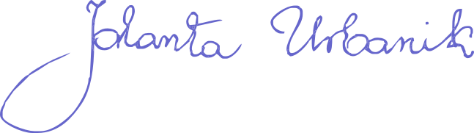 Jolanta Urbanik